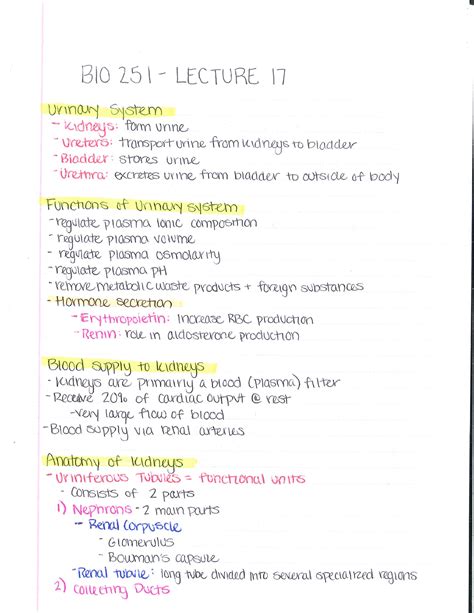 BIO 251 - LECTURE 17
Urinary System
- Kidneys: form urine
- Ureters: transport urine from kidneys to bladder
- Bladder: stores urine
- Urethra: excretes urine from bladder to outside of body
Functions of Urinary system
- regulate plasma ionic composition
- regulate plasma volume
- regulate plasma osmolarity
- regulate plasma pH
- remove metabolic waste products + foreign substances
- Hormone secretion
- Erythropoietin: Increase RBC production
- Renin: role in aldosterone production
Blood supply to kidneys
- Kidneys are primarily a blood (plasma) filter
- Receive 20% of cardiac output @ rest
- very large flow of blood
- Blood supply via renal arteries
Anatomy of Kidneys
- Uriniferous Tubules = functional units
- consists of 2 parts
1) Nephrons - 2 main parts
- Renal Corpuscle
- Glomerulus
- Bowman's capsule
- Renal tubule: long tube divided into several specialized regions
2) Collecting Ducts